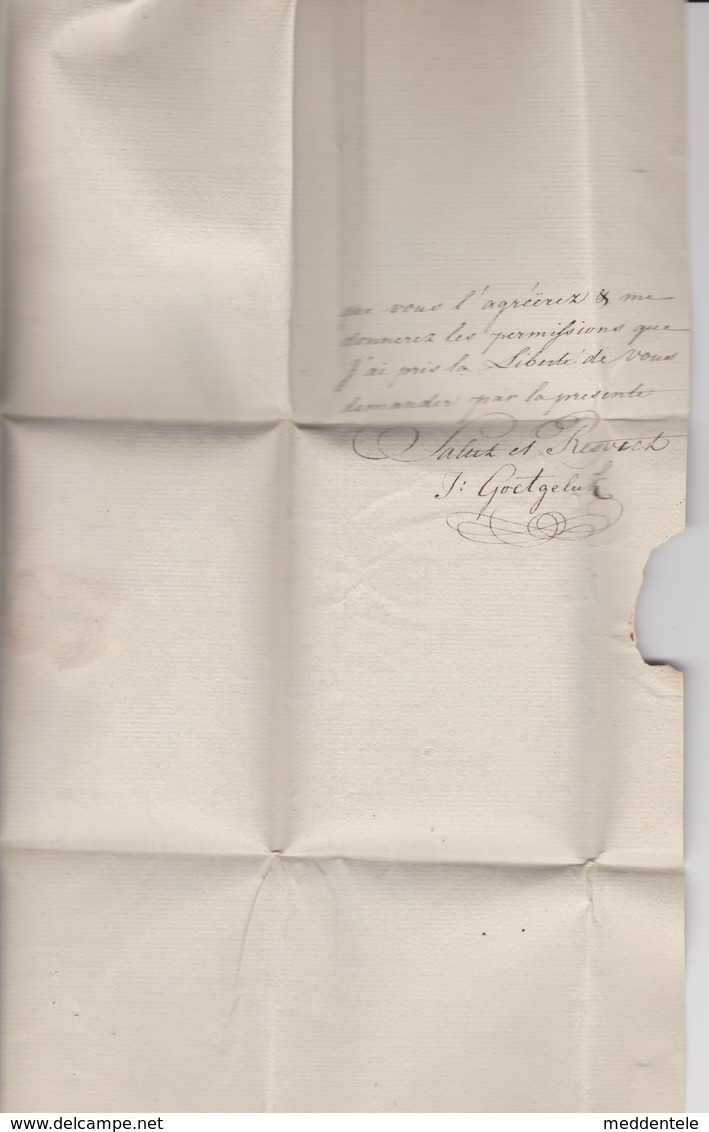 que vous l'agréërez & me
donnerez les permissions que
J'ai pris la Liberté de vous
demander par la presente
Salut et Respect
J: Goetgeluk
www.delcampe.net
meddentele